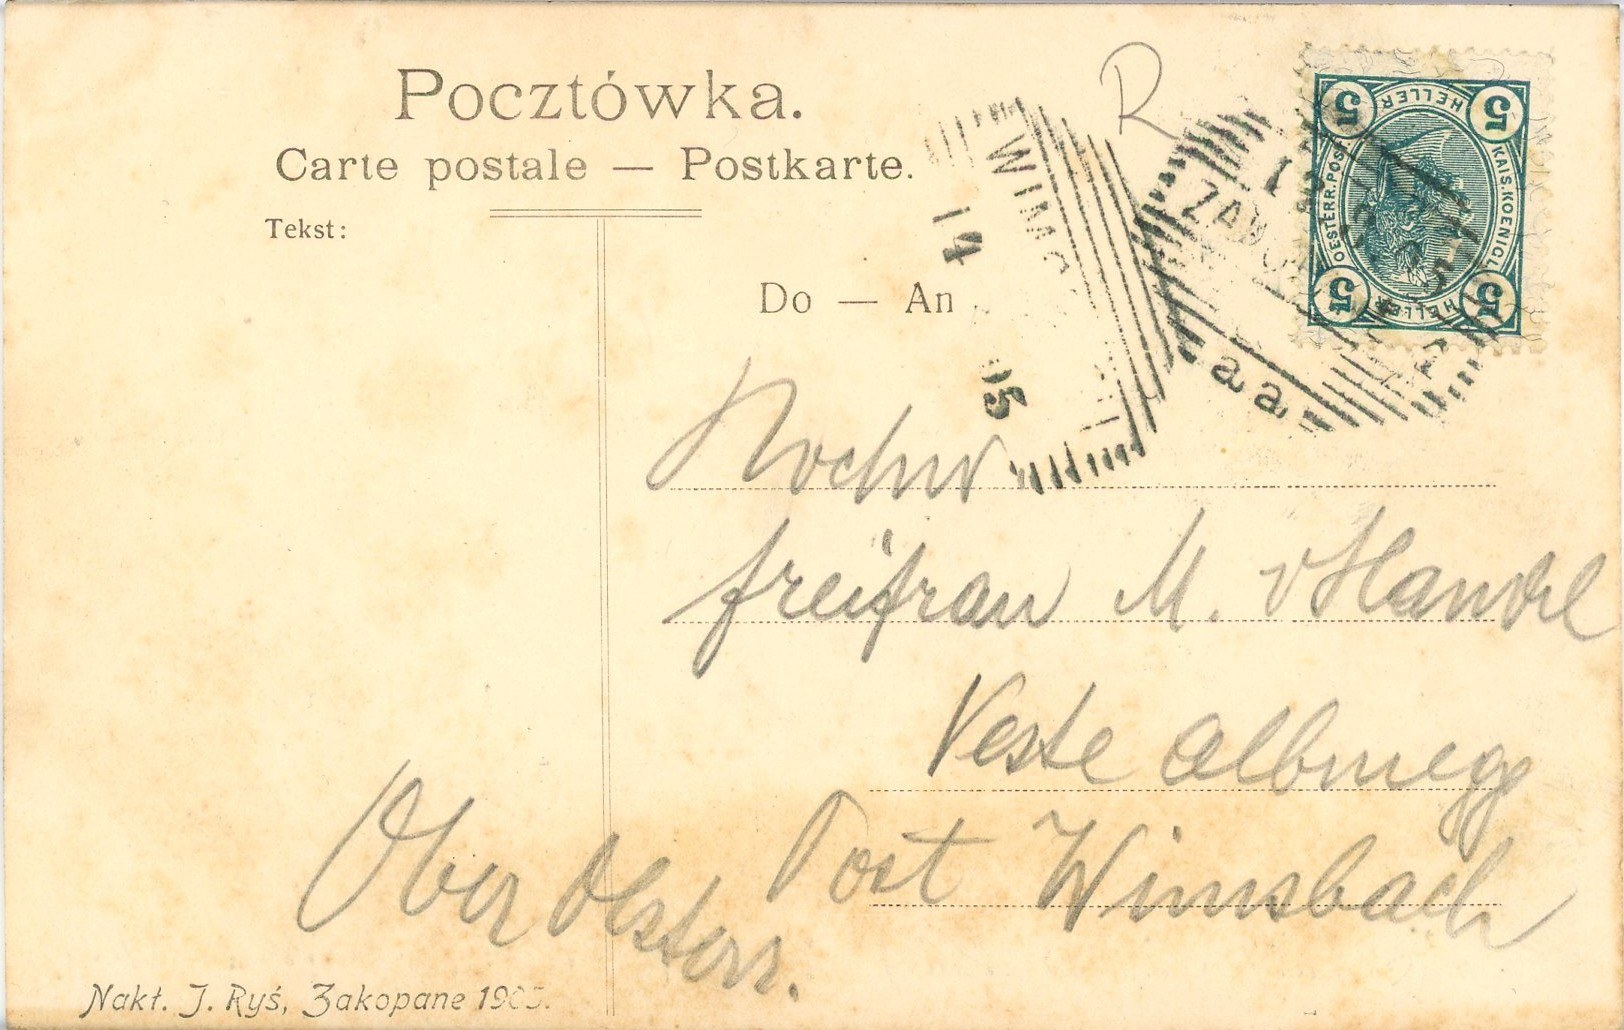 Pocztówka.
Carte postale — Postkarte.
Tekst:
Do — An
R
5 HELLER HELLER 5
OESTERR. POST.
KAIS. KOENIGL.
5 HELLER 5
14
05
a a
Hochw
freifrau M. v Handel
Veste Albmegg
Post Wimsbach
Ober Olsterr.
Nakł. J. Ryś, Zakopane 1905.